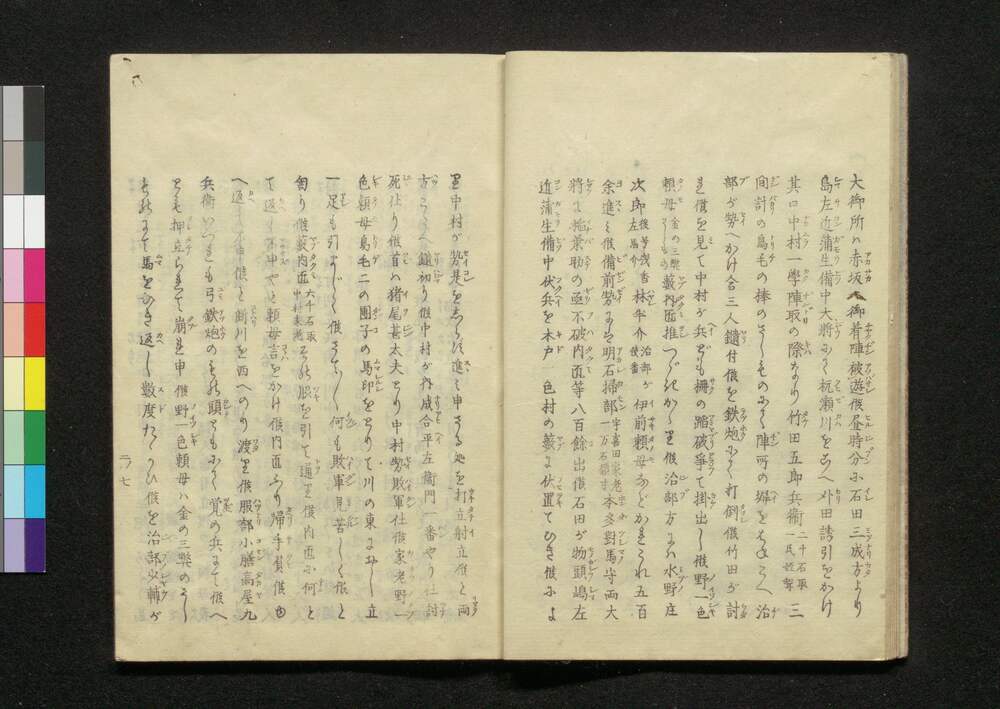 大御所ハ赤坂へ御着陣被遊候昼時分ニ石田三成方より
島左近蒲生備中大将ニて杭瀬川をこへ刈田誘引をかけ
其口中村一學陣取の際なり竹田五郎兵衛二千石取一氏姪聟三
間計の鳥毛の棒のさしものニて陣所の塀をはねこへ治
部が勢へかけ合三人鑓付候を鉄炮ニて打倒候竹田が討
れ候を見て中村が兵ども柵の踏破爭て掛出し候野一色
頼母金の三幣さしもの藪内匠推つゞきかゝり候治部方にハ水野庄
次郎左馬介後号成香林半介治部が使番伊前頼母などかれこれ五百
余進ミ候備前勢にて明石掃部宇喜田家老一万石本多對馬守両大
将に稲葉助の亟不破内匠等八百餘出候石田が物頭嶋左
近蒲生備中伏兵を木戸一色村の藪に伏置てひき候によ
里中村が勢是をしらず進ミ申さる処を打立射立候と両
方こらへ鑓初り候中村が内成合平左衛門一番やり仕討
死仕り候首ハ猪尾甚太夫とり中村勢敗軍仕候家老野一
色頼母鳥毛二の團子の馬印をとりて川の東にさし立
一足も引まじく候さて〳〵何も敗軍見苦しく候と
匐り候藪内匠六千石取中村家老そ頼母の眼を引て通り候内匠ニ何と
て返し不申やと頼母言をかけ候内匠ふり帰手負候由
へ返し不申候と断川を西へのり渡里候服部小膳高屋九
兵衛いつれも弓鉄炮のもの頭ともニて覚の兵にて候へ
とも押立られて崩れ申候野一色頼母ハ金の三幣のさし
ものにて馬をひき返し数度たゝかひ候を治部少輔が
二ノ七